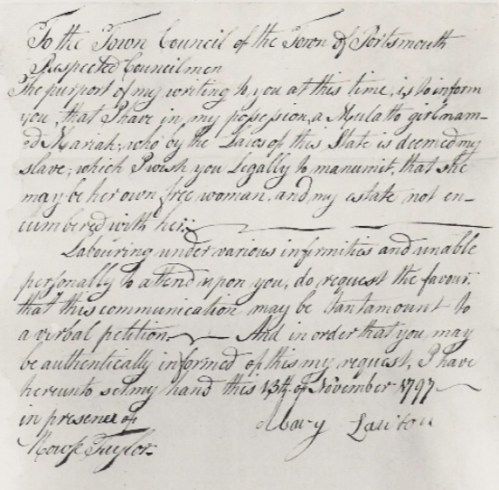 To the Town Council of the Town of Portsmouth
Respected Councilmen
The purport of my writing to you at this time, is to inform
you, that I have in my possession, a Mulatto girl nam-
ed Mariah; who by the Laws of this State is deemed my
slave; which I wish you Legally to manumit, that she
may be her own free woman, and my estate not en-
cumbered with her:
Labouring under various infirmities and unable
personally to attend upon you, do request the favour
that this communication may be tantamount to
a verbal petition. And in order that you may
be authentically informed of this my request, I have
hereunto set my hand this 13th of November 1797
in presence of Mary Lawton
Taylor